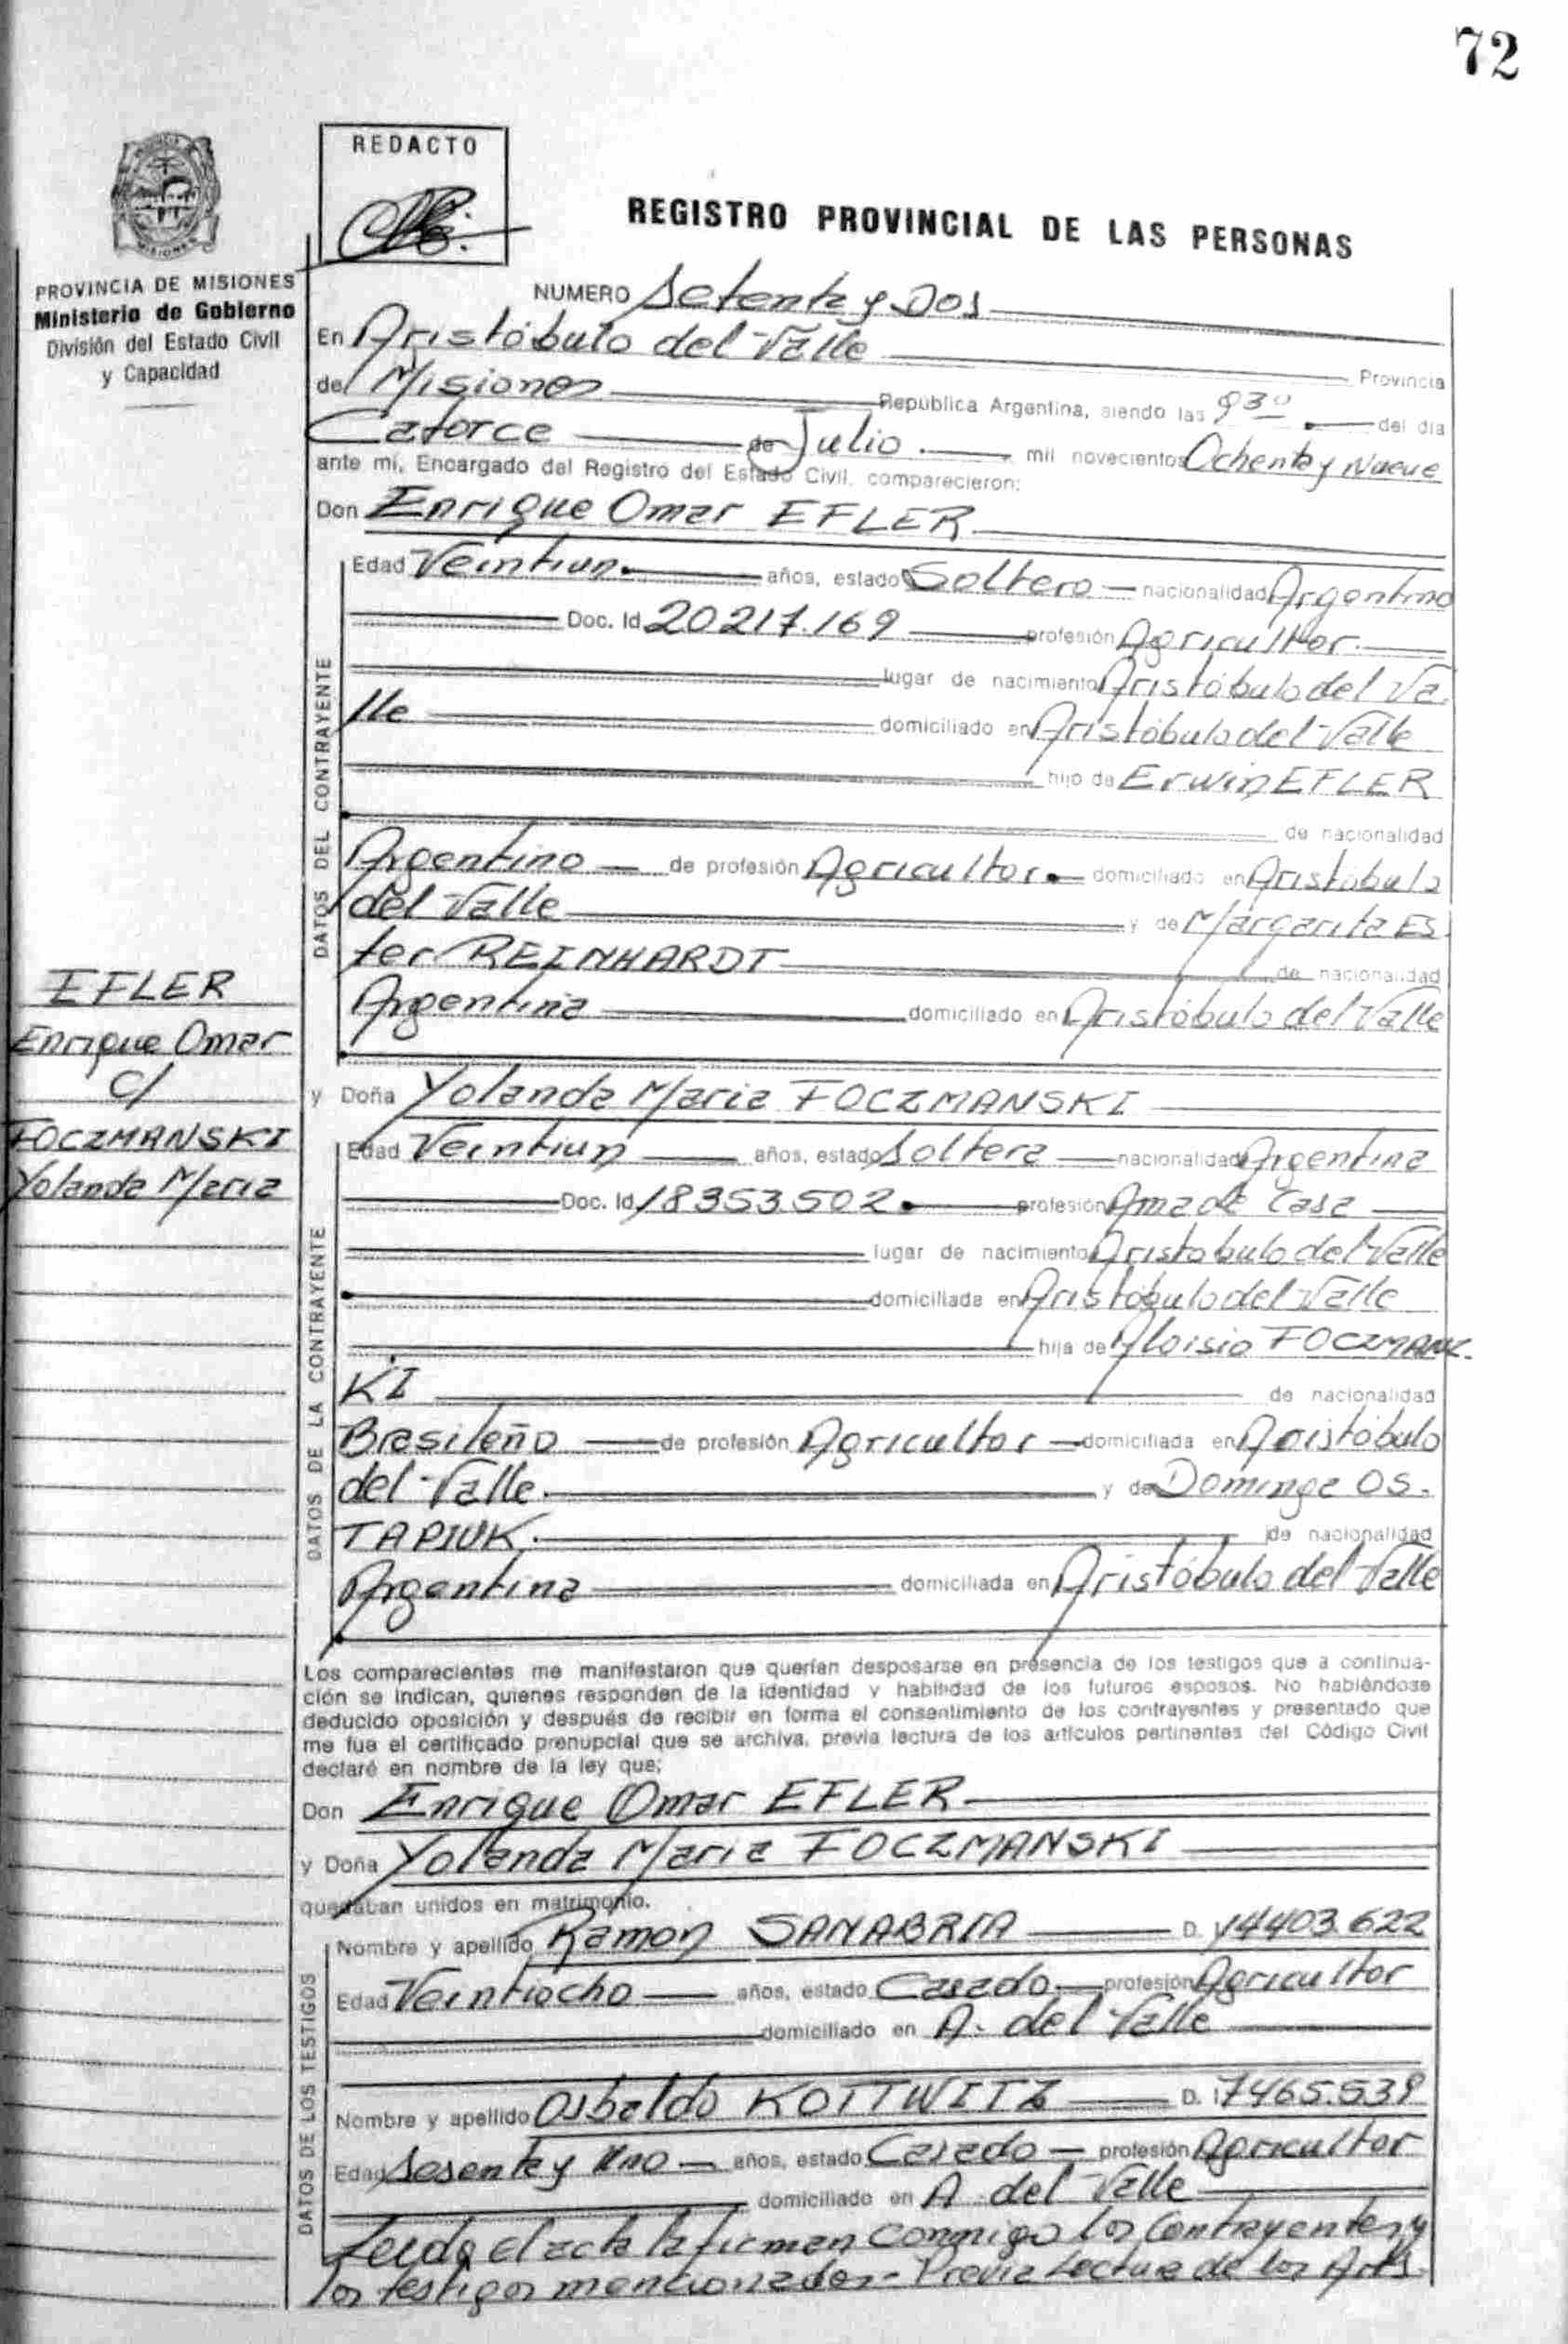 72
REDACTO
REGISTRO PROVINCIAL DE LAS PERSONAS
PROVINCIA DE MISIONES
Ministerio de Gobierno
División del Estado Civil
y Capacidad
NUMERO Setenta y Dos
En Aristóbulo del Valle Provincia
de Misiones República Argentina, siendo las 9³⁰ del día
Catorce de Julio mil novecientos Ochenta y Nueve
ante mí, Encargado del Registro del Estado Civil, comparecieron:
Don Enrique Omar EFLER
DATOS DEL CONTRAYENTE
Edad Veintiun años, estado Soltero nacionalidad Argentino
Doc. Id 20217.169 profesión Agricultor
lugar de nacimiento Aristóbulo del Va
lle domiciliado en Aristóbulo del Valle
hijo de Erwin EFLER
de nacionalidad
Argentino de profesión Agricultor domiciliado en Aristóbulo
del Valle y de Margarita Es
ter REINHARDT de nacionalidad
Argentina domiciliado en Aristóbulo del Valle
EFLER
Enrique Omar
c/
FOCZMANSKI
Yolanda Maria
y Doña Yolanda Maria FOCZMANSKI
DATOS DE LA CONTRAYENTE
Edad Veintiun años, estado Soltera nacionalidad Argentina
Doc. Id 18353.502 profesión Ama de Casa
lugar de nacimiento Aristobulo del Valle
domiciliada en Aristóbulo del Valle
hija de Aloisio FOCZMANS
KI de nacionalidad
Brasileño de profesión Agricultor domiciliada en Aristóbulo
del Valle y de Dominga OS.
TAPIUK de nacionalidad
Argentina domiciliada en Aristóbulo del Valle
Los comparecientes me manifestaron que querían desposarse en presencia de los testigos que a continua-
ción se indican, quienes responden de la identidad y habilidad de los futuros esposos. No habiéndose
deducido oposición y después de recibir en forma el consentimiento de los contrayentes y presentado que
me fue el certificado prenupcial que se archiva, previa lectura de los artículos pertinentes del Código Civil
declaré en nombre de la ley que;
Don Enrique Omar EFLER
y Doña Yolanda Maria FOCZMANSKI
quedaban unidos en matrimonio.
DATOS DE LOS TESTIGOS
Nombre y apellido Ramon SANABRIA D. I 14403.622
Edad Veintiocho años, estado Casado profesión Agricultor
domiciliado en A. del Valle
Nombre y apellido Osbaldo KOTTWITZ D. I 7465.539
Edad Sesenta y Uno años, estado Casado profesión Agricultor
domiciliado en A. del Valle
Leida el acta la firman conmigo los Contrayentes y
los testigos mencionados - Previa Lectura de los Arts.